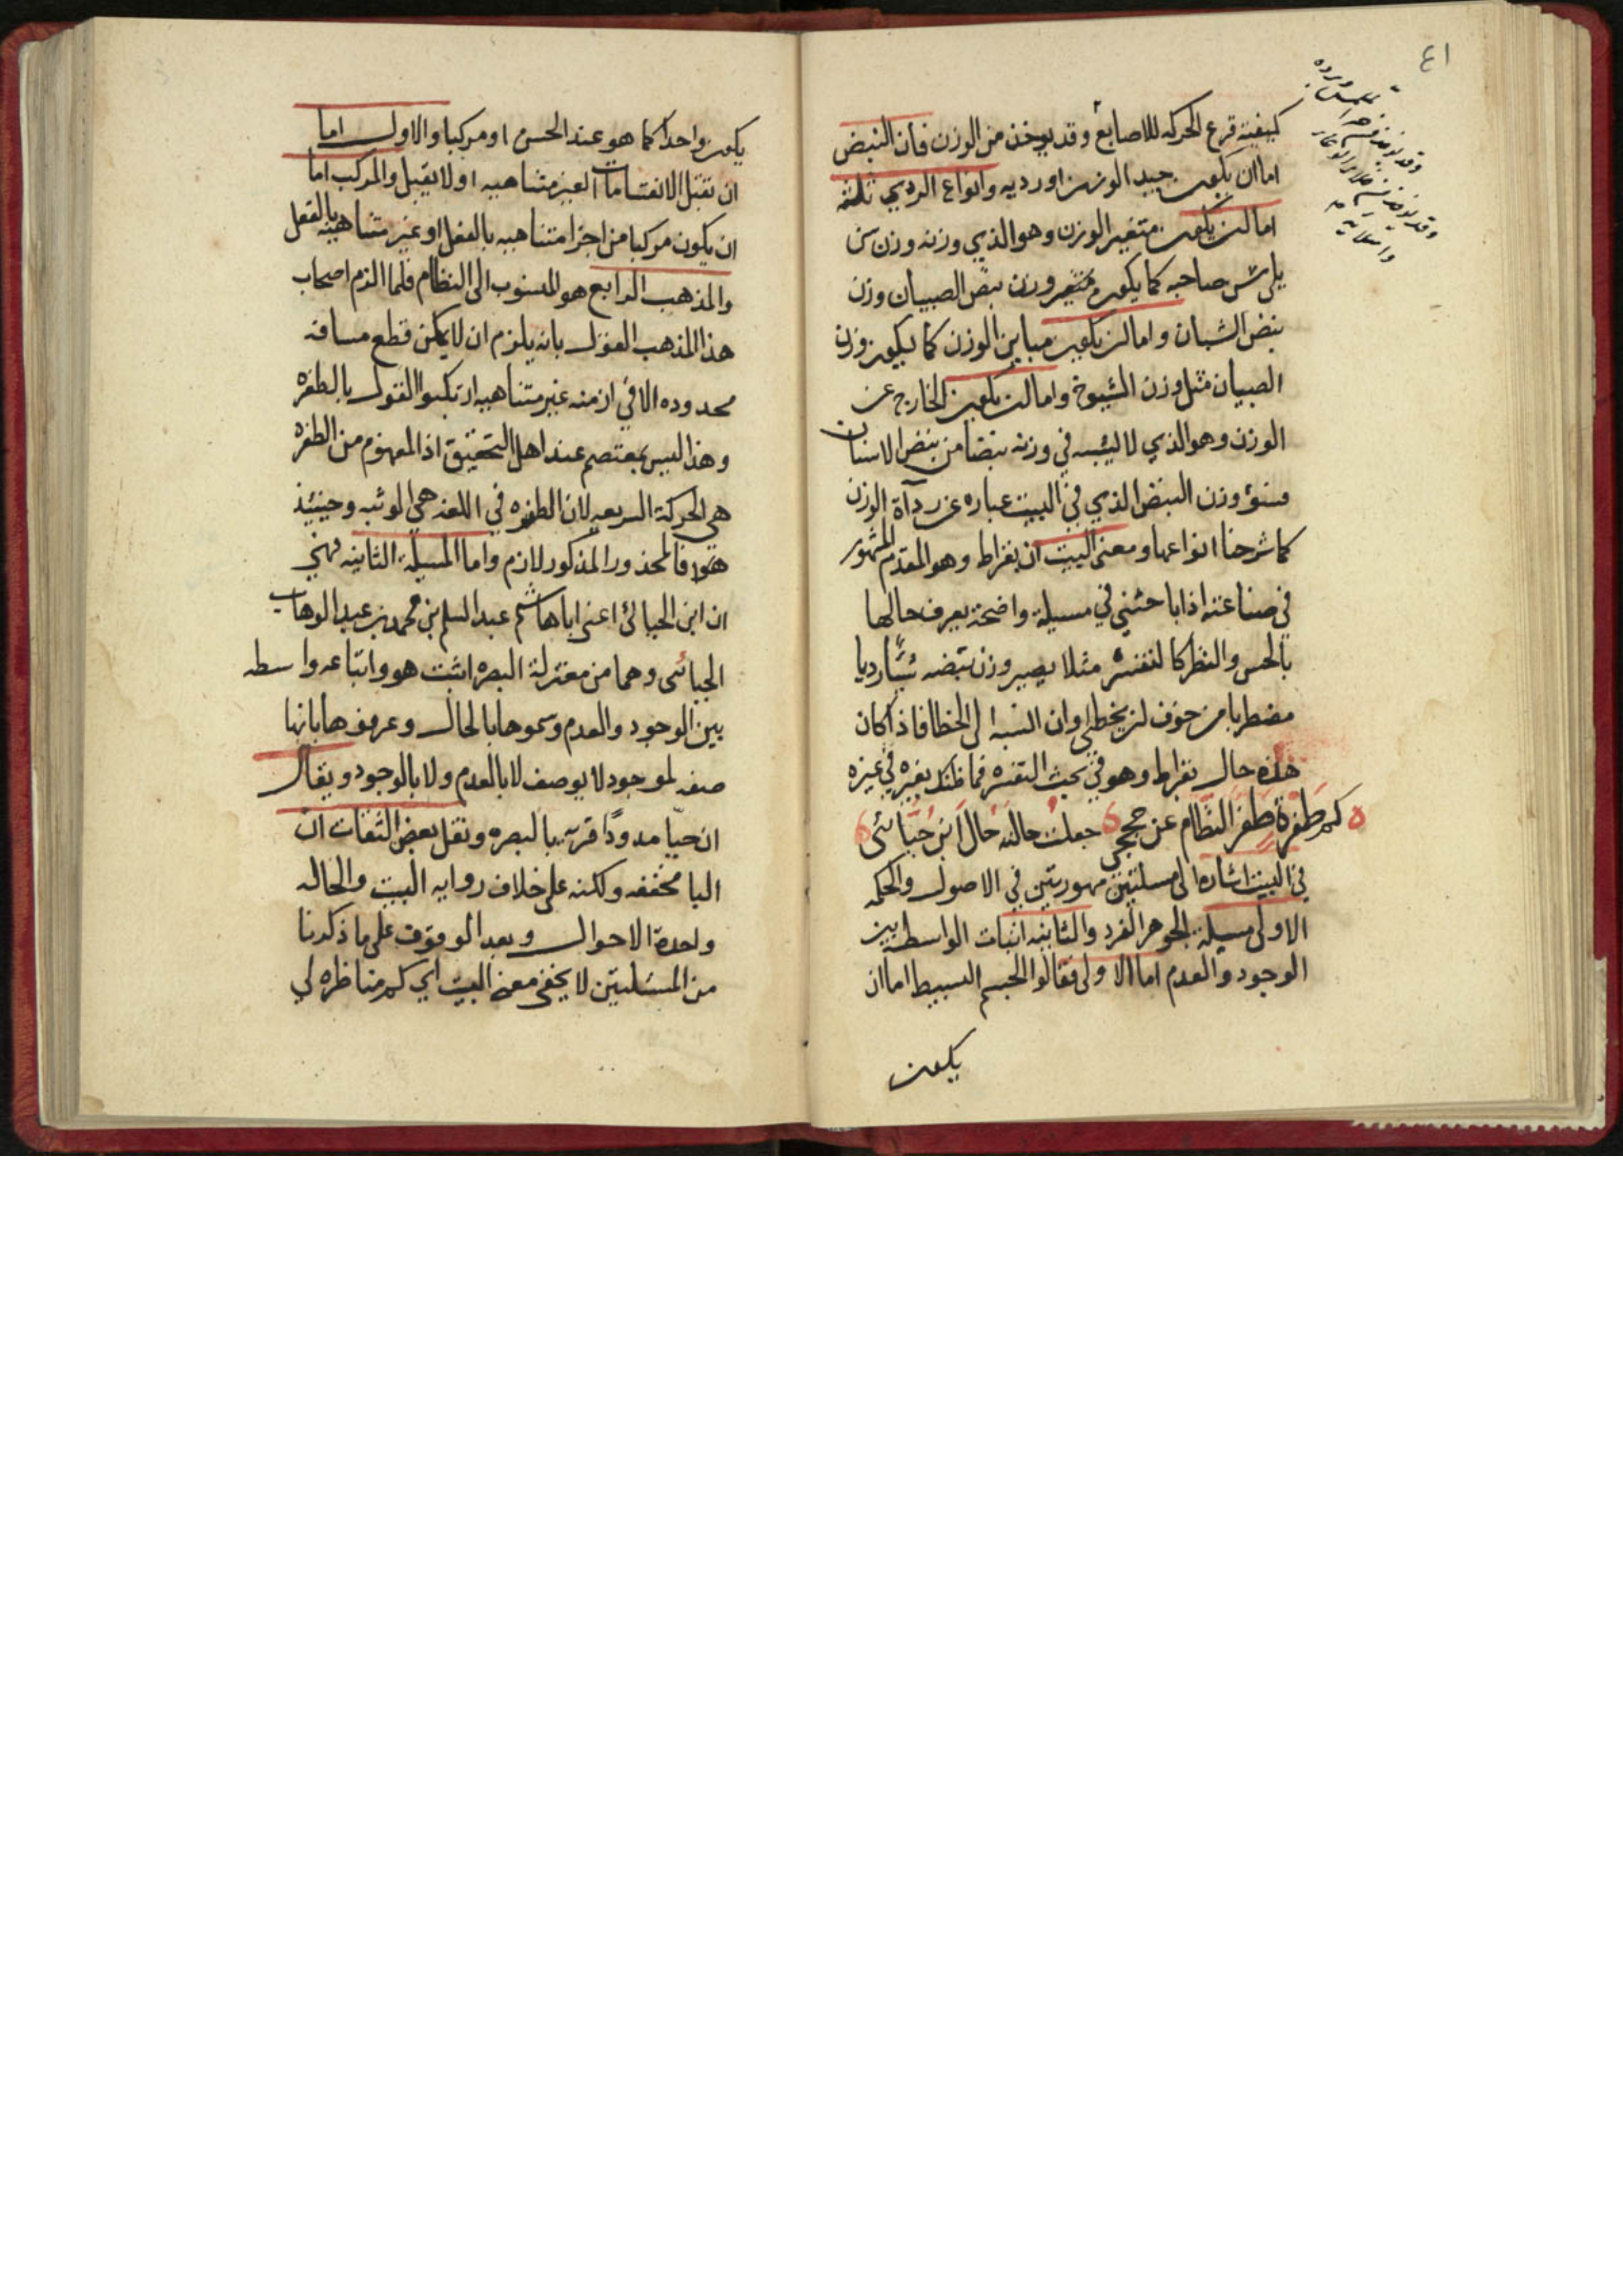 ٤١
كيفيته قرع الحركه للاصابع وقد يوخذ من الوزن فان النبض
اما ان يكون جيد الوزن او رديه وانواع الردي ثلثه
اما ان يكون متغير الوزن وهو الذي وزنه وزن سن
يلي سن صاحبه كما يكون متغير وزن نبض الصبيان وزن
نبض الشبان واما ان يكون مباين الوزن كما يكون وزن
الصبيان مثل وزن الشيوخ واما ان يكون الخارج عن
الوزن وهو الذي لا يشبه في وزنه نبضا من نبض الاسنان
فسوء وزن النبض الذي في البيت عباره عن ردآة الوزن
كما شرحنا انواعها ومعنى البيت ان بقراط وهو المقدم المشهور
في صناعته اذا باحثني في مسيلة واضحة يعرف حالها
بالحس والنظر كالتفسره مثلا يصير وزن نبضه شيًا رديا
مضطربا من خوف ان يخطئ او ان انسبه الى الخطا فاذا كان
هذه حال بقراط وهو في بحث التفسره فما ظنك بغيره في غيره
كم طَفْرةٍ طَفَرَ النظّام عن حججي جعلتُ حالته حالَ ابنِ جُبّائى
في البيت اشاره الى مسلتين مهورتين في الاصول والحكمه
الاولى مسيلة الجوهر الفرد والثانيه اثبات الواسطه بين
الوجود والعدم اما الاولى فقالوا الجسم البسيط اما ان
يكون
يكون واحدا كما هو عند الحس او مركبا والاول اما
ان تقبل الانقسامات الغير متناهيه او لا يقبل والمركب اما
ان يكون مركبا من اجزا متناهيه بالفعل او غير متناهيه بالفعل
والمذهب الرابع هو المنسوب الى النظام فلما الزم اصحاب
هذا المذهب القول بانه يلزم ان لا يمكن قطع مسافه
محدوده الا في ازمنه غير متناهيه ارتكبوا القول بالطفره
وهذا ليس بمعتصم عند اهل التحقيق اذ المفهوم من الطفره
هي الحركة السريعه لان الطفره في اللغه هي الوثبه وحينئذ
فالمحذور المذكور لازم واما المسيلة الثانيه فهي
ان ابن الجبائى اعنى ابا هاشم عبد السلم بن محمد بن عبد الوهاب
الجبائى وهما من معتزلة البصره اثبت هو واتباعه واسطه
بين الوجود والعدم وسموها بالحال وعرفوها بانها
صفه لموجود لا يوصف لا بالعدم ولا بالوجود ويقال
ان جبّا مدودًا قرية بالبصره ونقل بعض الثقات ان
البا مخففه ولكنه على خلاف روايه البيت والحال
واحدة الاحوال وبعد الوقوف على ما ذكرنا
من المسلتين لا يخفى معنى البيت اي كم مناظره لي